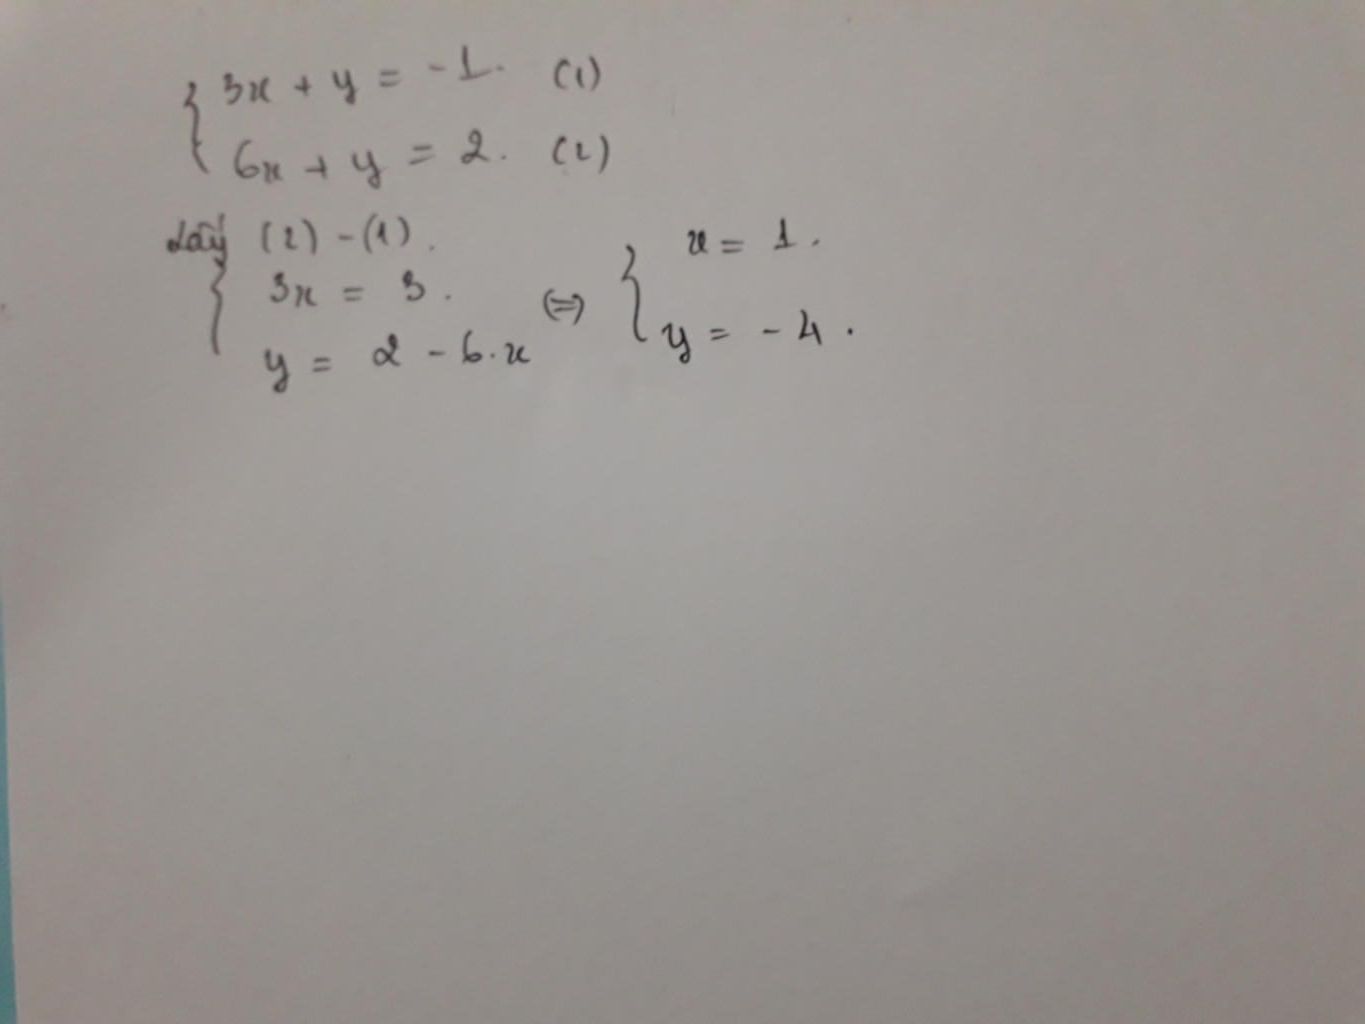 { 3x + y = -1. (1)
6x + y = 2. (2)
Lấy (2) - (1).
{ 3x = 3.
y = 2 - 6.x
(=) { x = 1.
y = -4.